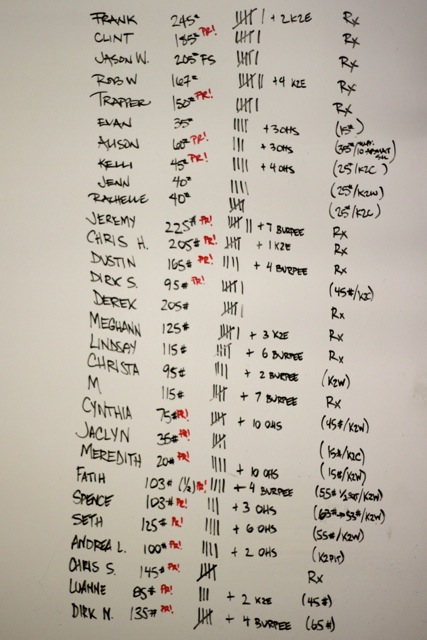 FRANK 245# |||| | + 2 K2E Rx
CLINT 185# PR! |||| | Rx
JASON W. 205# FS |||| | Rx
ROB W 167# |||| || + 4 K2E Rx
TRAPPER 150# PR! |||| | Rx
EVAN 35# |||| + 3 OHS (15#)
ALISON 60# PR! |||| + 3 OHS
KELLI 45# PR! |||| + 4 OHS (25#/K2C)
JENN 40# |||| (25#/K2W)
RACHELLE 40# |||| (25#/K2C)
JEREMY 225# PR! |||| || + 7 BURPEE Rx
CHRIS H. 205# PR! |||| + 1 K2E Rx
DUSTIN 165# PR! |||| + 4 BURPEE Rx
DIRK S. 95# PR! |||| | (45#/K2C)
DEREK 205# |||| | Rx
MEGHANN 125# |||| | + 3 K2E Rx
LINDSAY 115# |||| + 6 BURPEE Rx
CHRISTA 95# |||| + 2 BURPEE (K2W)
M 115# |||| + 7 BURPEE Rx
CYNTHIA 75# PR! |||| + 10 OHS (45#/K2W)
JACLYN 35# PR! |||| (15#/K2C)
MEREDITH 20# PR! |||| + 10 OHS (15#/K2W)
FATIH 103# (1/2) PR! |||| + 4 BURPEE (55# 1/2 SQT/K2W)
SPENCE 103# PR! ||| + 3 OHS (63#→53#/K2W)
SETH 125# PR! |||| + 6 OHS (55#/K2W)
ANDREA L. 100# PR! |||| + 2 OHS
CHRIS S. 145# PR! |||| Rx
LUANNE 85# PR! ||| + 2 K2E (45#)
DIRK N. 135# PR! |||| + 4 BURPEE (65#)